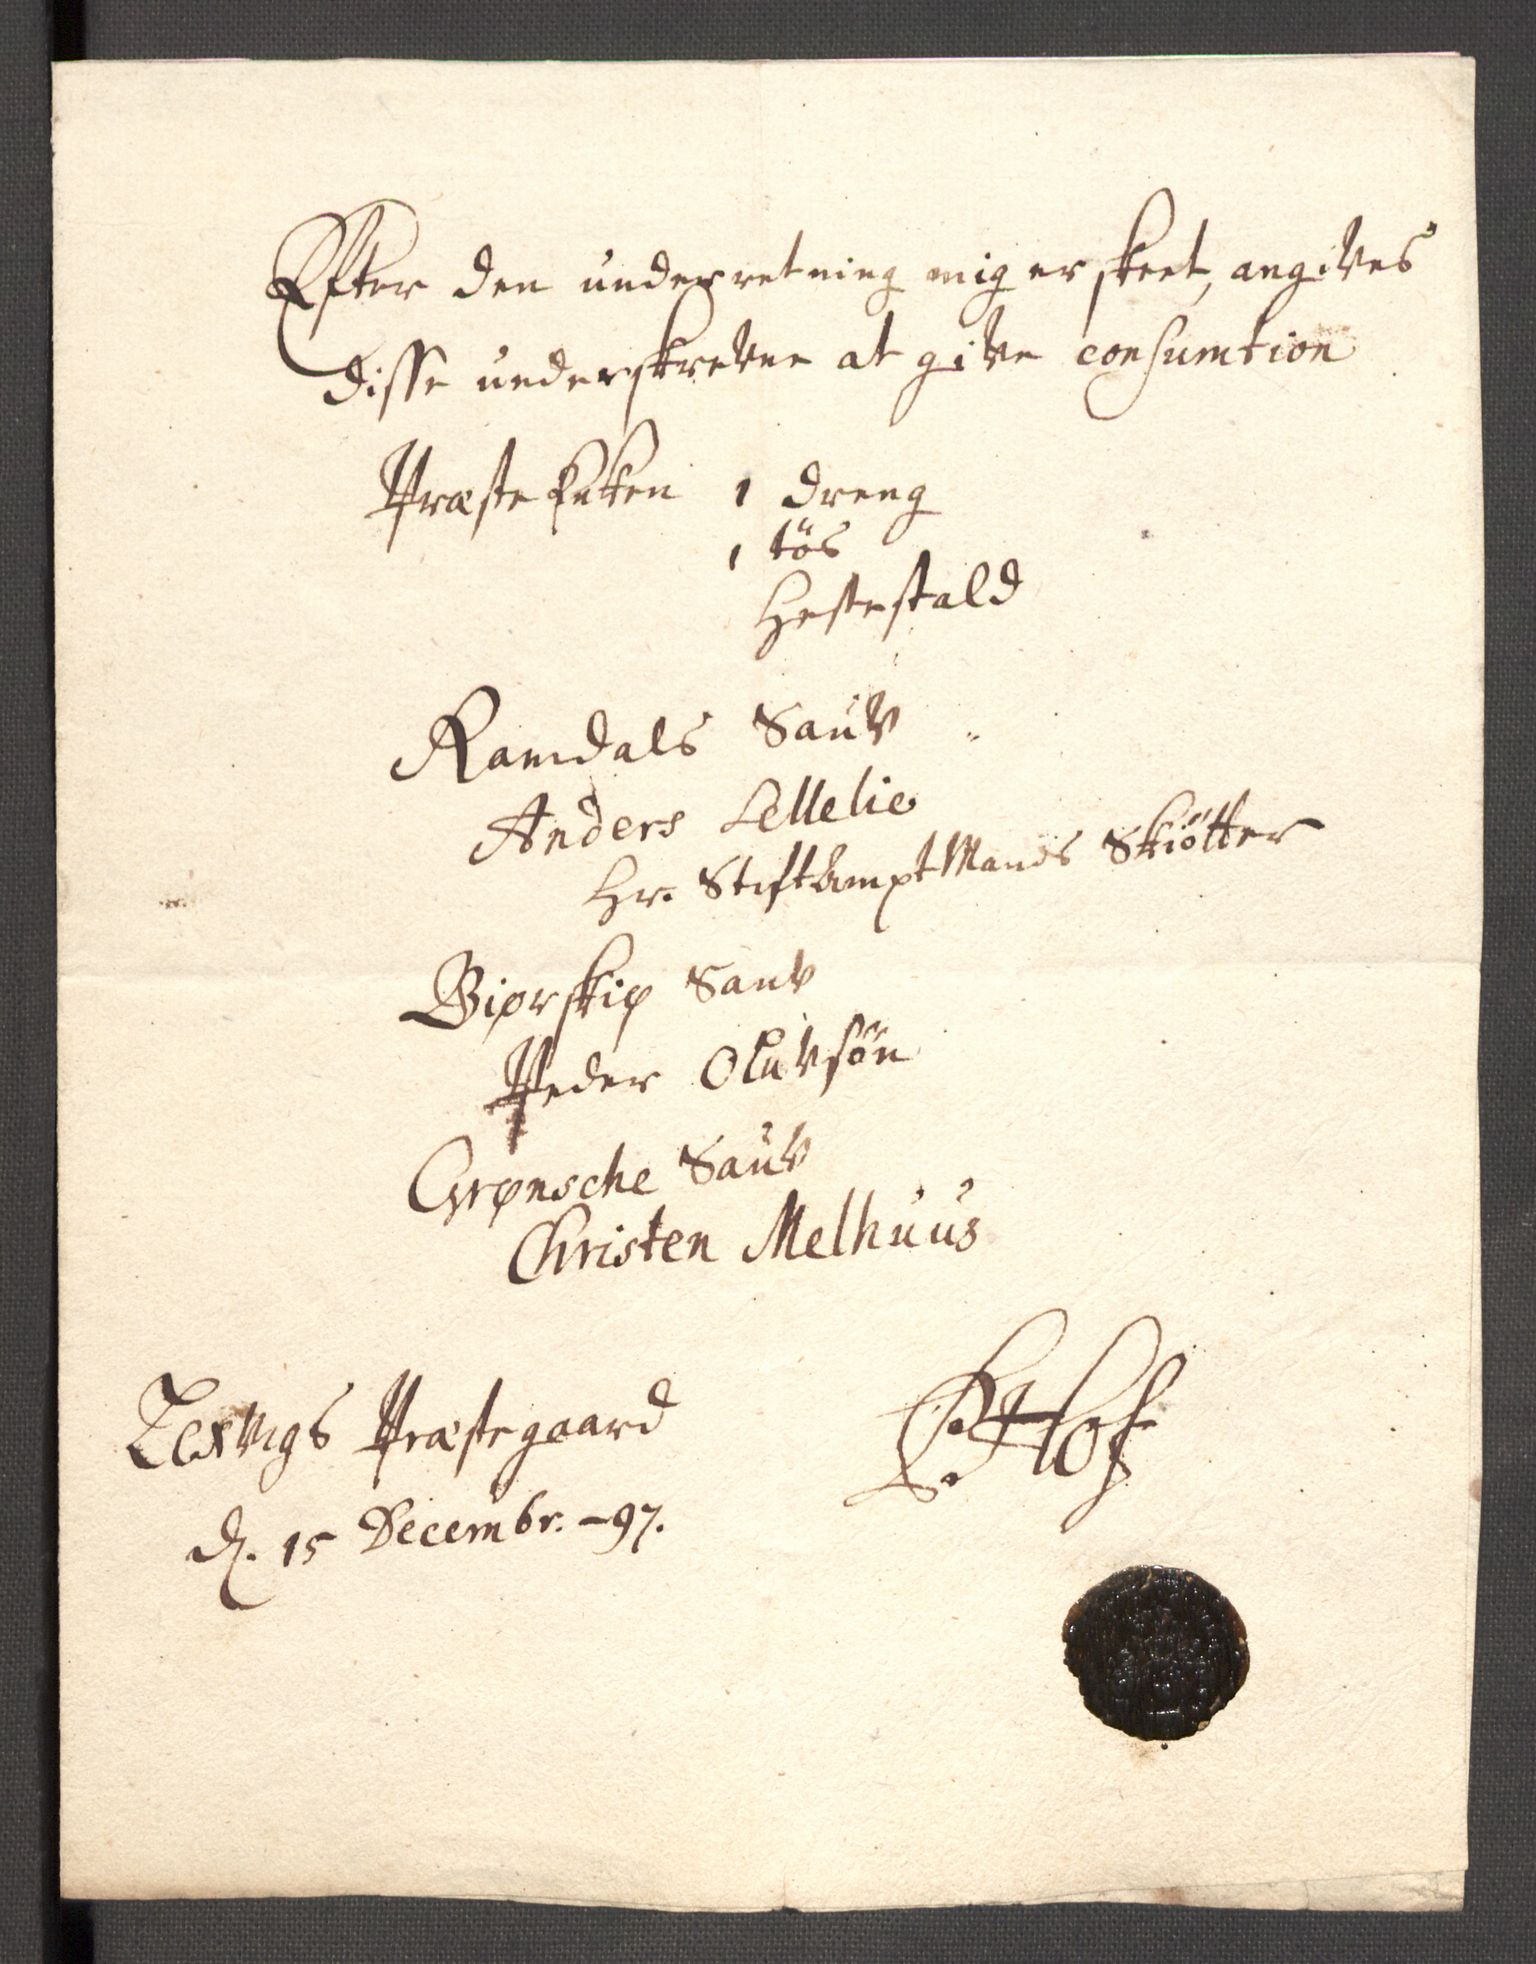 Efter den underretning mig er skeet, angives
disse underskrevne at give consumtion
Præste Enken 1 dreng
1 tös
Hestestald
Ramdals Sauv
Anders Lellelie
Hr. StiftAmptMands Skiötter
Biørskip Sauv
Peder Oluvsön
Grønsche Sauv
Christen Melhuus
Lexvigs Præstegaard
d. 15 Decembr. -97.
Hof